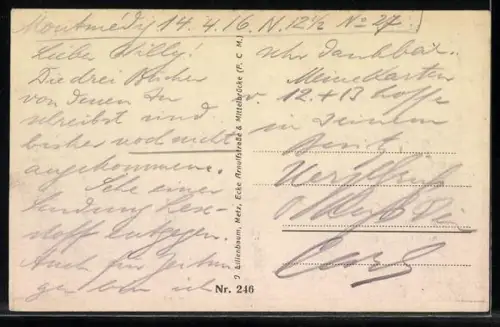 Montmédy 14.4.16 N. 12½ No 27
Lieber Willy!
Die drei Bücher
von denen Du
schreibst sind
bisher noch nicht
angekommen.
Sehe einer
Sendung Les-
stoff entgegen.
Auch für Zeitun-
gen bin ich
sehr dankbar.
Meine Karten
v. 12 + 13 hoffe
in Deinem
Besitz.
Herzlichst
Carl
J. Lilienbaum, Metz, Ecke Arnulfstraße & Mittelbrücke (P. C. M.)
Nr. 246